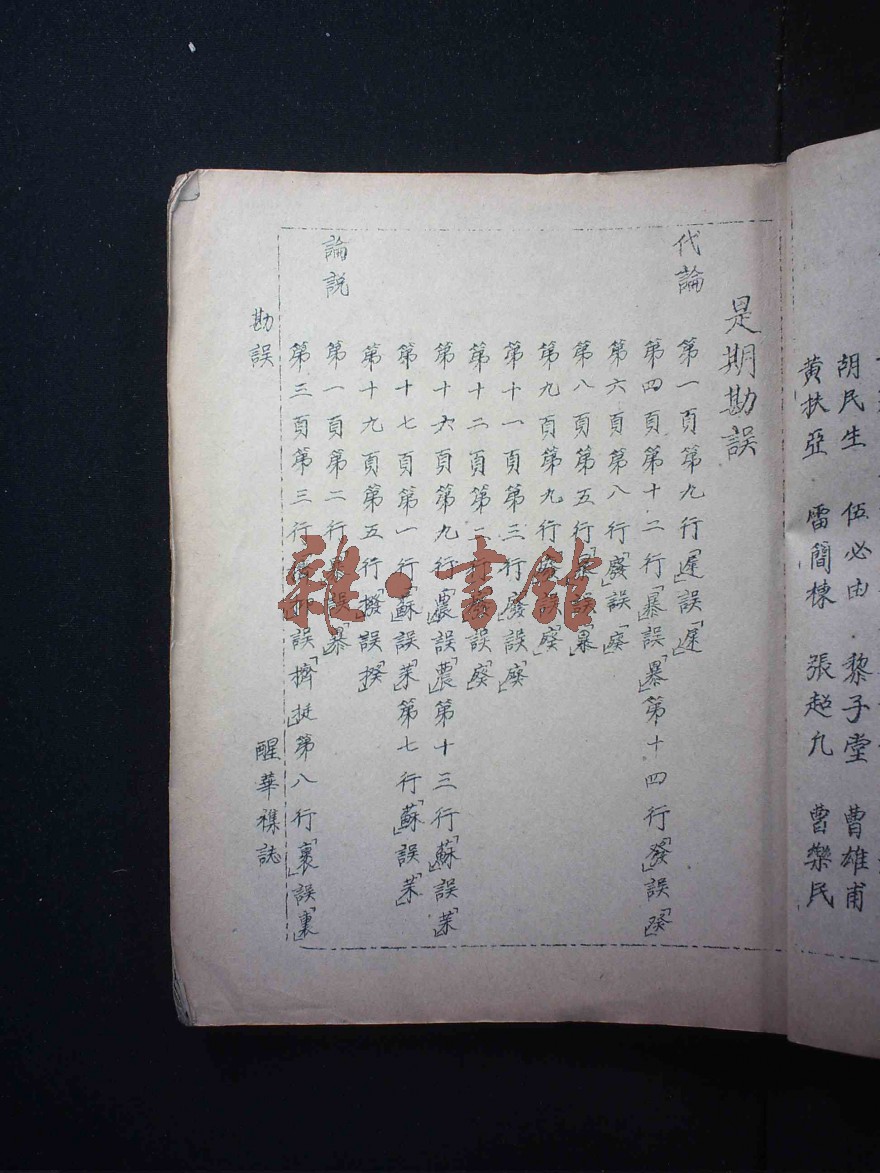 胡民生 伍必由 黎子堂 曹雄甫
黄扶亞 雷簡棟 張超九 曹樂民
是期勘誤
代論
第一頁第九行「遲」誤「
第四頁第十二行「暴」誤「 第十四行「發」誤「
第六頁第八行「廢」誤「
第八頁第五行「暴」誤
第九頁第九行「廢」誤
第十一頁第三行「廢」誤
第十二頁第二行 誤
第十六頁第九行「農」誤「農」第十三行「蘇」誤「
第十七頁第一行「蘇」誤「 第七行「蘇」誤「
第十九頁第五行「撥」誤「
論説
第一頁第二行 誤「暴」
第三頁第三行 誤「擠 第八行「裏」誤「裏」
勘誤
醒華襍誌
雜·書館